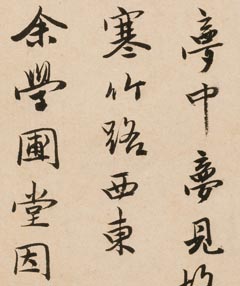 夢中夢見
寒竹路西東
余學圃堂因